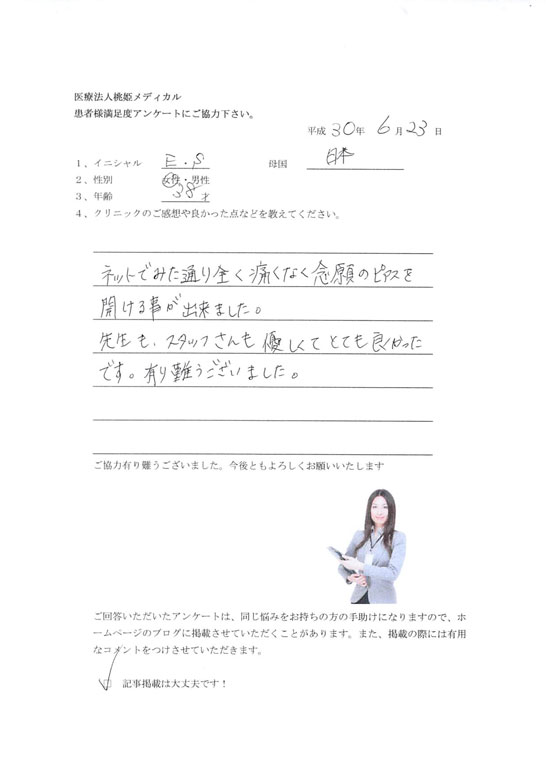 医療法人桃姫メディカル
患者様満足度アンケートにご協力下さい。
平成 30年 6月23日
1、イニシャル E.S 母国 日本
2、性別 女性・男性
3、年齢 38才
4、クリニックのご感想や良かった点などを教えてください。
ネットでみた通り全く痛くなく念願のピアスを
開ける事が出来ました。
先生も、スタッフさんも優しくてとても良かった
です。有り難うございました。
ご協力有り難うございました。今後ともよろしくお願いいたします
ご回答いただいたアンケートは、同じ悩みをお持ちの方の手助けになりますので、ホ
ームページのブログに掲載させていただくことがあります。また、掲載の際には有用
なコメントをつけさせていただきます。
□ 記事掲載は大丈夫です！